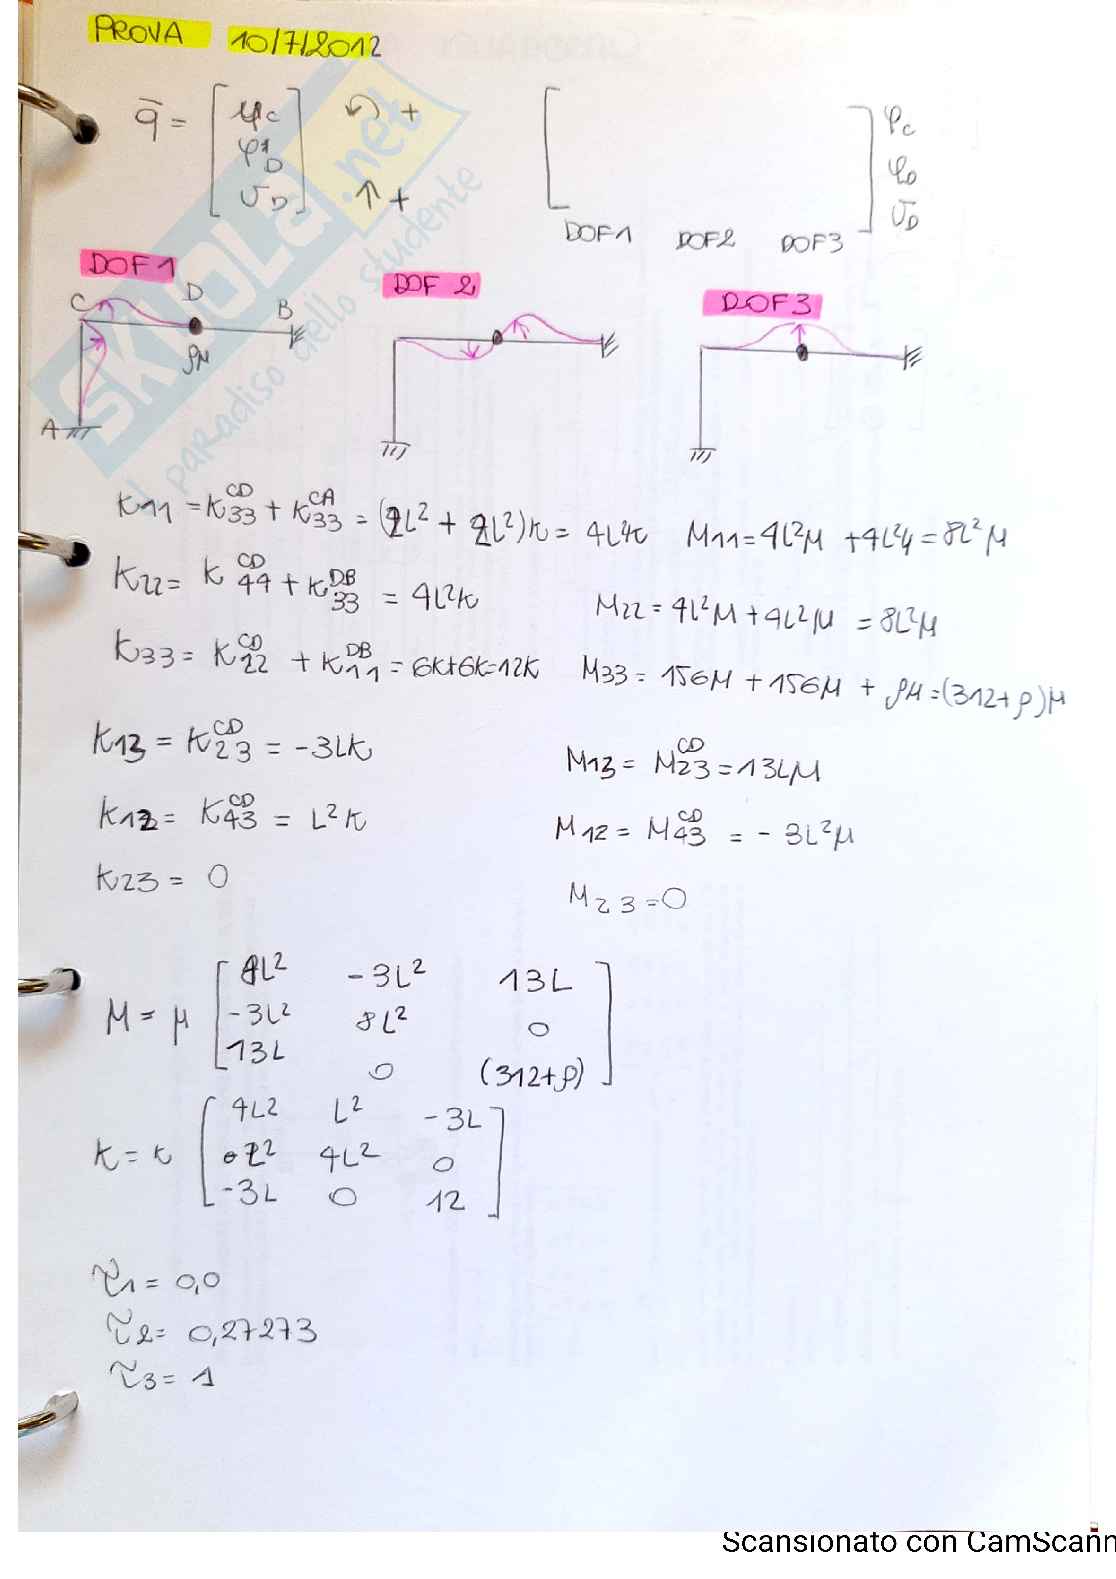 PROVA 10/7/2012
q̄ = [φC φD vD] ↶ + ↑ +
[ ] φC φD vD
DOF1 DOF2 DOF3
DOF1
DOF 2
DOF3
C D B
ρM
A
SKUOLA.net
il paradiso dello studente
K11 = K33^CD + K33^CA = (2L² + 2L²)K = 4L²K M11 = 4L²μ + 4L²μ = 8L²μ
K22 = K44^CD + K33^DB = 4L²K M22 = 4L²μ + 4L²μ = 8L²μ
K33 = K22^CD + K11^DB = 6K+6K=12K M33 = 156μ + 156μ + ρμ = (312+ρ)μ
K13 = K23^CD = -3LK M13 = M23^CD = 13Lμ
K12 = K43^CD = L²K M12 = M43^CD = - 3L²μ
K23 = 0 M23 = 0
8L² -3L² 13L
M = μ -3L² 8L² 0
13L 0 (312+ρ)
4L2 L² -3L
K = K L² 4L² 0
-3L 0 12
τ1 = 0,0
τ2 = 0,27273
τ3 = 1
Scansionato con CamScann